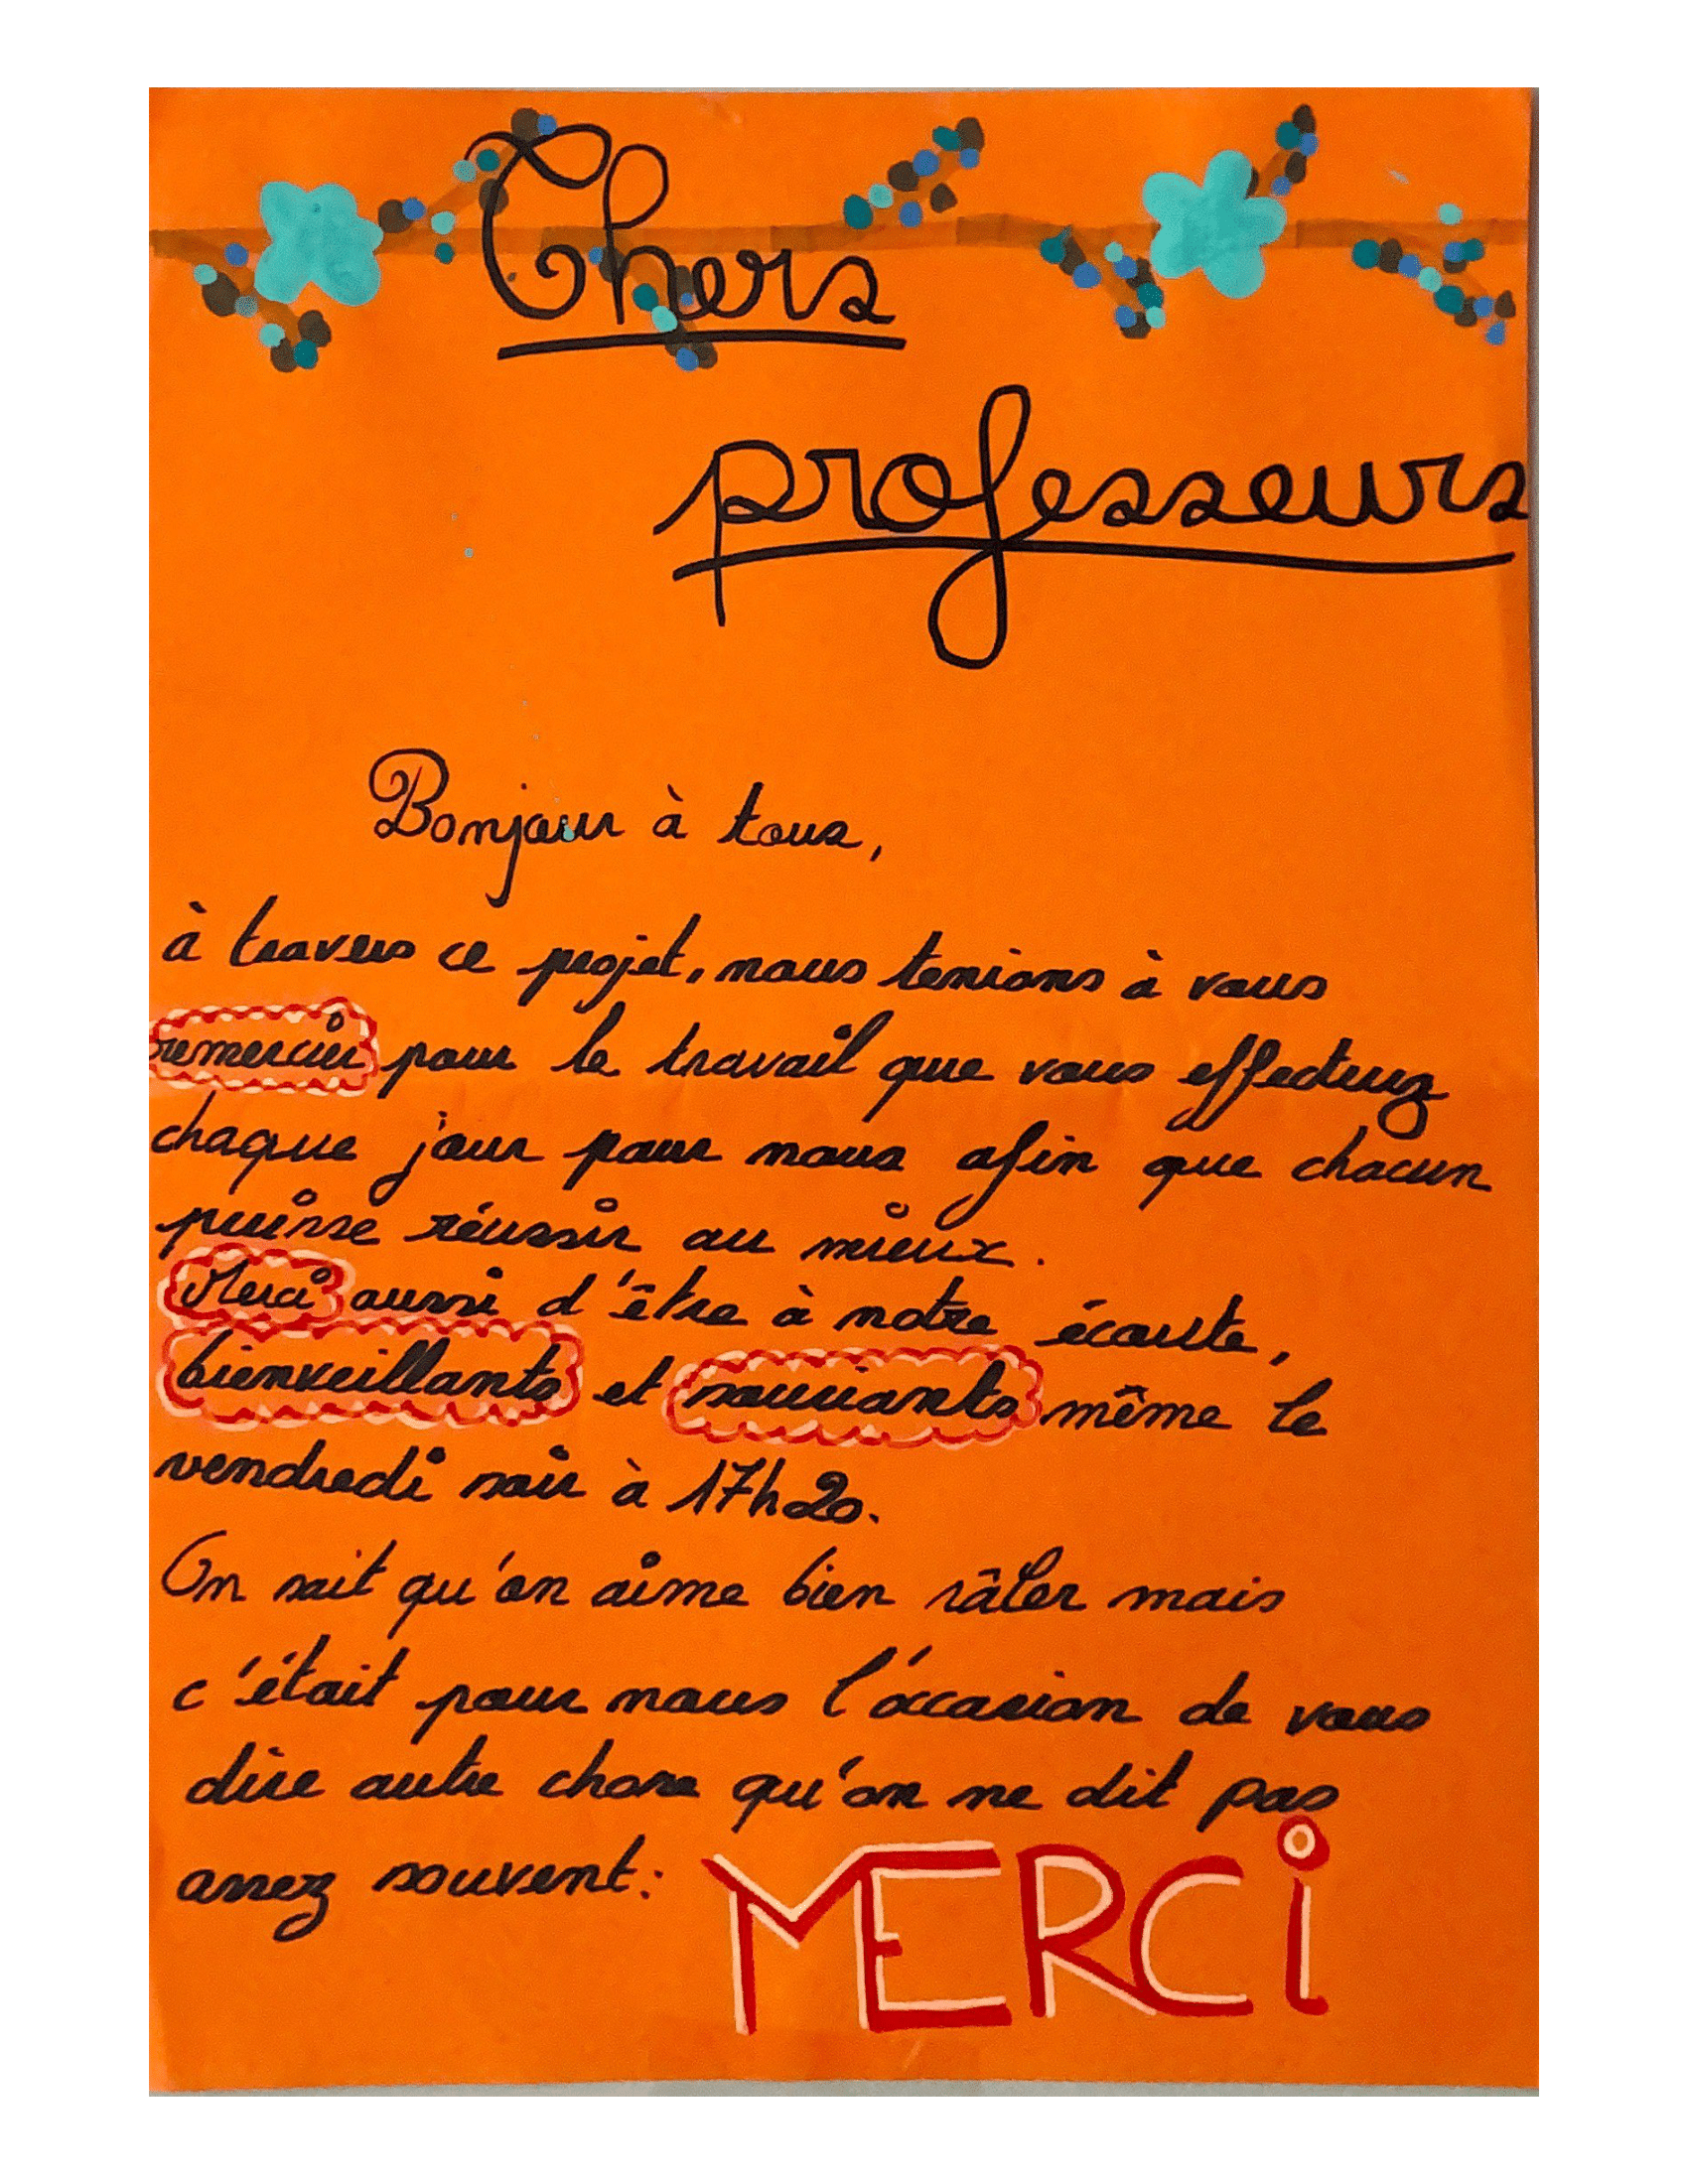 Chers
professeurs
Bonjour à tous,
à travers ce projet, nous tenions à vous
remercier pour le travail que vous effectuez
chaque jour pour nous afin que chacun
puisse réussir au mieux.
Merci aussi d'être à notre écoute,
bienveillants et souriants même le
vendredi soir à 17h20.
On sait qu'on aime bien râler mais
c'était pour nous l'occasion de vous
dire autre chose qu'on ne dit pas
assez souvent: MERCi